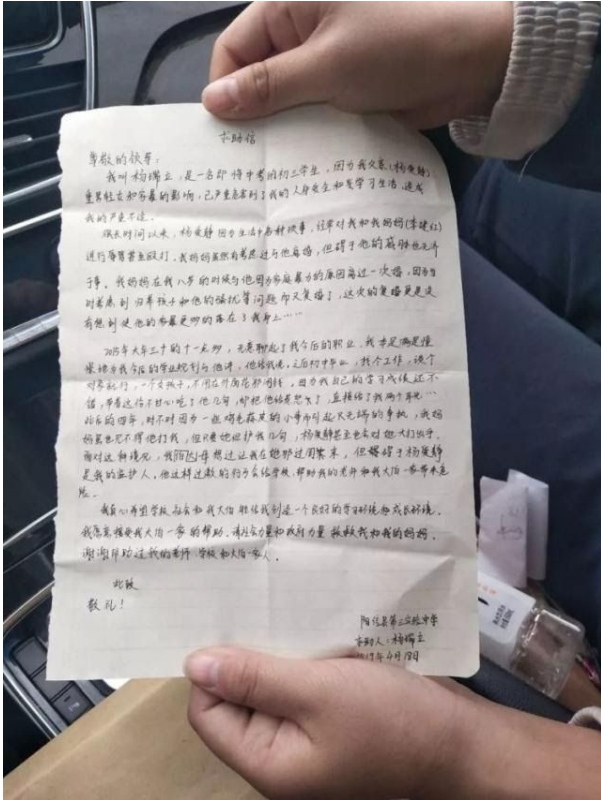 求助信
尊敬的领导:
我叫杨瑞立,是一名即将中考的初三学生,因为我父亲(杨俊静)
重男轻女和家暴的影响,已严重危害到了我的人身安全和我学习生活,造成
我的严重不适。
很长时间以来,杨俊静因为生活中各种琐事,经常对我和我妈妈(李建红)
进行辱骂甚至殴打,我妈妈虽然有考虑过与他离婚,但碍于他的威胁也无济
于事。我妈妈在我八岁的时候与他因为家庭暴力的原因离过一次婚,因为当
时考虑到归养孩子和他的骚扰等问题而又复婚了,这次的复婚更是没
有想到使他的家暴更多的落在了我身上……
2015年大年三十的十一点多,无意聊起了我今后的职业,我本是满是憧
憬地为我今后的学业规划与他讲,他给我说,之后初中毕业,找个工作,谈个
对象就行,一个女孩子,不用在外面花那闲钱,因为我自己的学习成绩还不
错,带着这份不甘心吃了他几句,却把他给惹怒了,直接给了我两个耳光…
此后的四年,时不时因为一些鸡毛蒜皮的小事而引起大无端的争执,我妈
妈虽也见不得他打我,但只要她但护我几句,杨俊静甚至也会对她大打出手。
面对这种情况,我伯母想过让我在她那过周末,但碍于杨俊静
是我的监护人,他这样过激的行为会给学校,帮助我的老师和我大伯一家带来危
险。
我真心希望学校、社会和我大伯能给我创造一个良好的学习环境和成长环境。
我愿意接受我大伯一家的帮助。请社会力量和政府力量救救我和我的妈妈。
谢谢帮助过我的老师、学校和大伯一家人。
此致
敬礼!
阳信县第三实验中学
求助人:杨瑞立
2019年4月18日